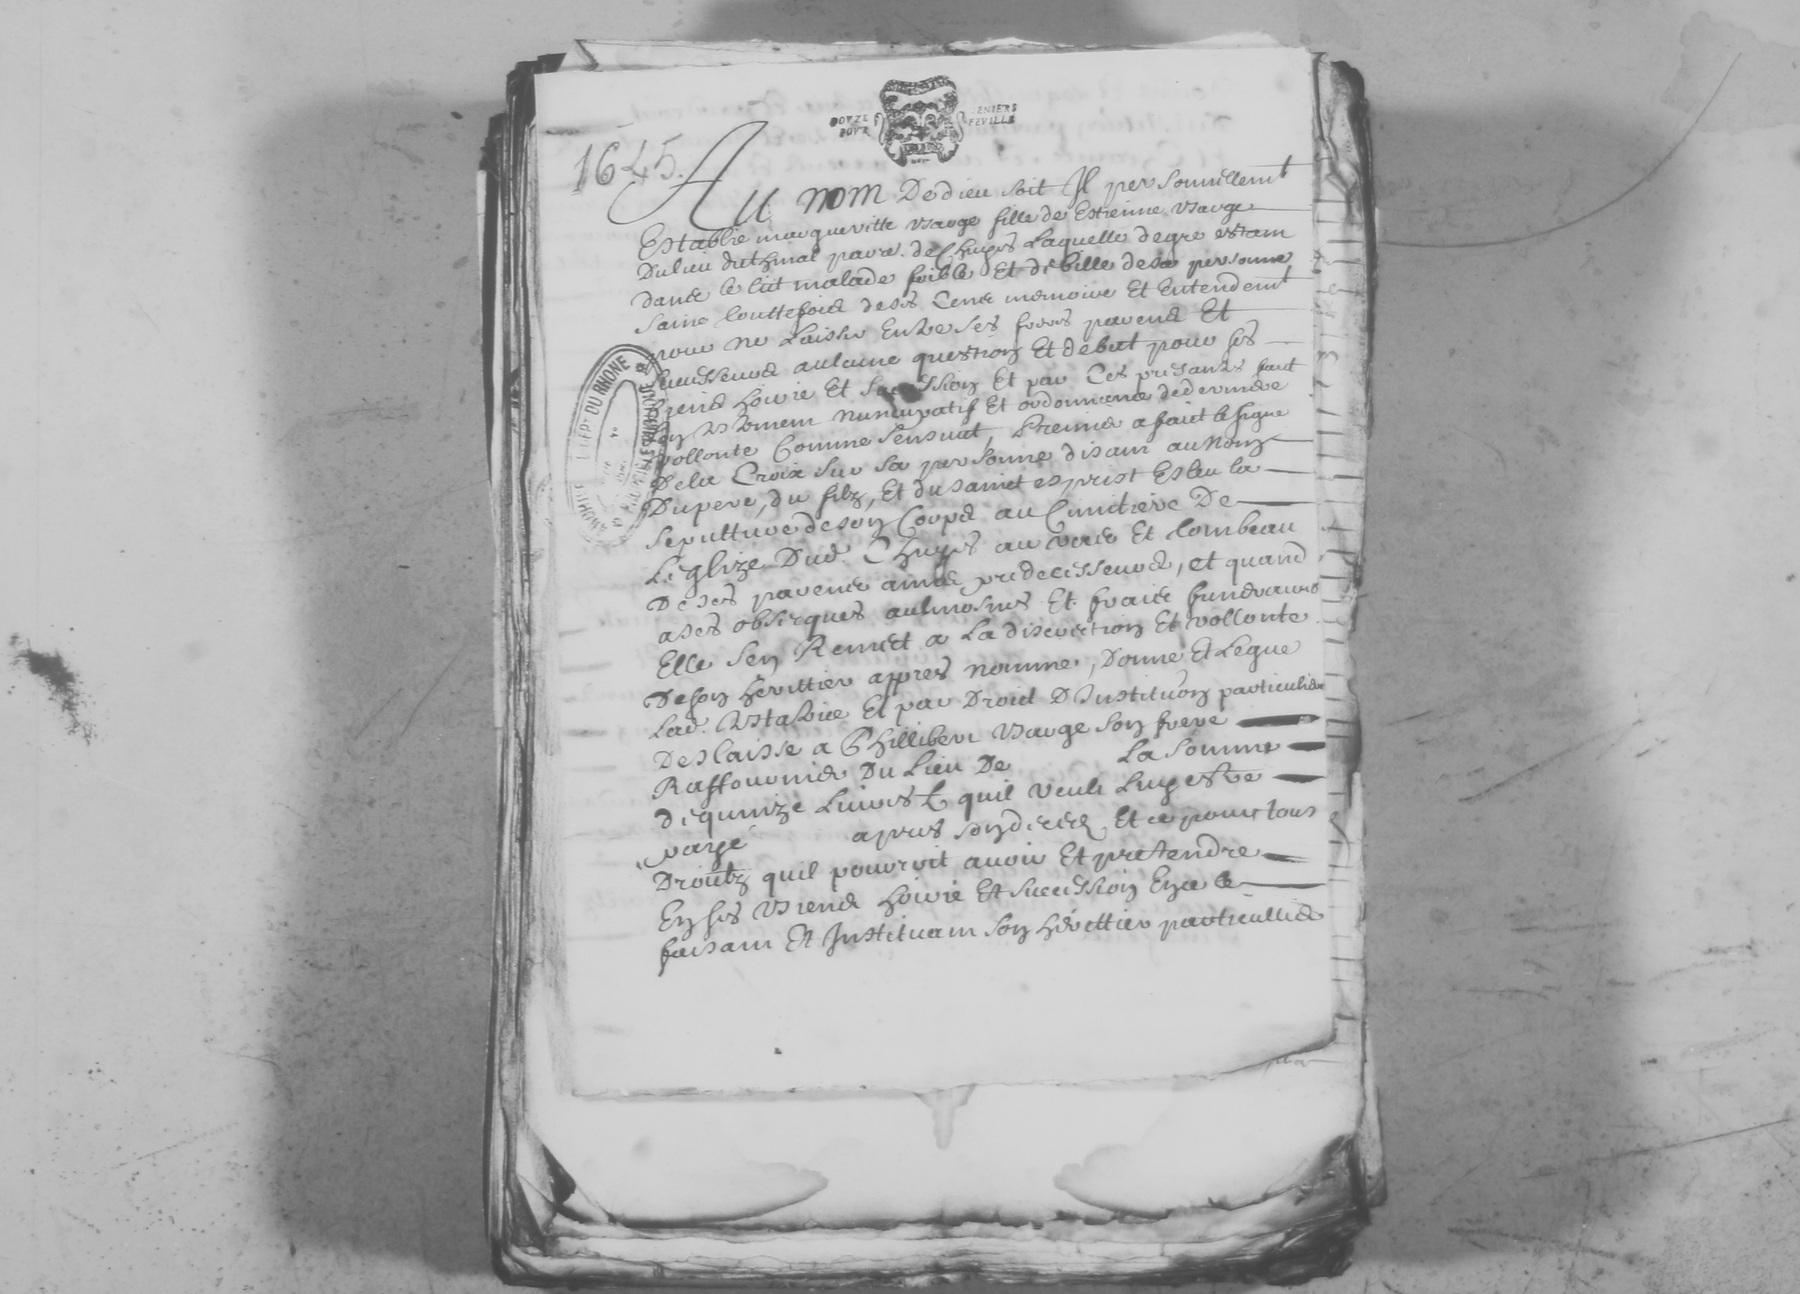 DOVZE DENIERS
POVR FEVILLE
1645.
Au nom De dieu soit Il personnellemt
Establie marqueritte Vauge fille de Estienne Vauge
Du lieu du parr. de Chuyes Laquelle de gre estam
dans le lict malade foible Et debille de sa personne
saine touttefois de ses Cens memoire Et Entendemt
pour ne Laisser Entre ses freres parens Et
successeurs aulcune question Et debat pour ses
biens hoirie Et succession Et par Ces presantes faict
son testemem nuncupatif Et ordonnance de derniere
vollonte Comme sensuict, Premier a faict le signe
De la Croix sur sa personne disam au nom
Du pere, du filz, Et du sainct esprist Esleu la
sepulture de son Corps au Cimitiere De
Leglize Dud. Chuyes au vas Et tombeau
De ses parens predecesseurs, et quand
a ses obseques aulmosnes Et frais funeraires
Elle sen Remect a La discretion Et vollonte
De son herittier appres nomme, Donne Et Legue
Lad. testatrice Et par Droict DInstitution particuliere
Deslaisse a Phillibert Vauge son frere
Du Lieu De La somme
de quinze Livres quil veult Luy estre
paye apres son deces Et ce pour tous
Droictz quil pourroit avoir Et pretendre
En ses biens hoirie Et succession En ce
faisam Et Instituam son herittier particullier
DEPT DU RHONE
ARCHIVES